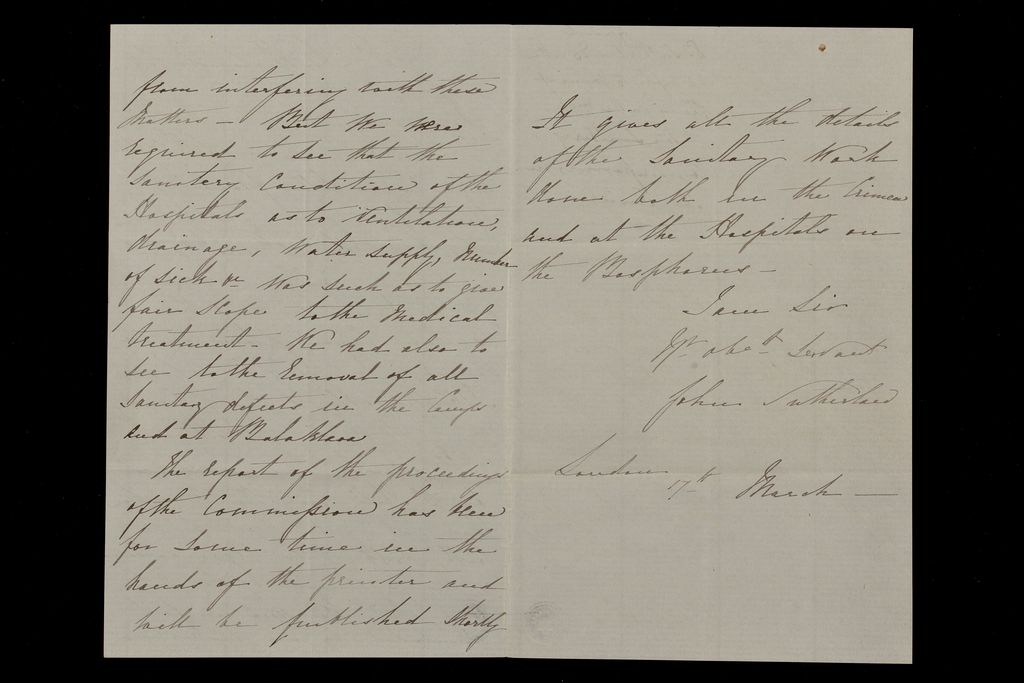 from interfering with these
Matters – But We were
required to see that the
Sanitary Condition of the
Hospitals as to Ventilation,
drainage, Water supply, Number
of Sick &c was such as to give
fair scope to the Medical
treatment – We had also to
see to the removal of all
Sanitary defects in the Camps
and at Balaklava
The report of the proceedings
of the Commission has been
for some time in the
hands of the printer and
will be published shortly
It gives all the details
of the Sanitary Work
done both in the Crimea
and at the Hospitals on
the Bosphorus –
I am Sir
Yr. obet. Servant
John Sutherland
London
17th March –